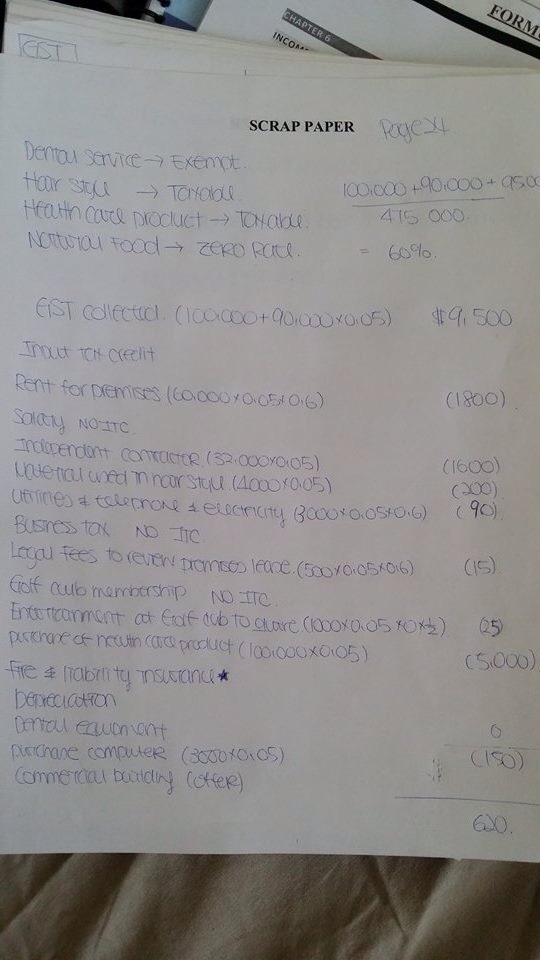 FORMU
CHAPTER 6
INCOM
GST
SCRAP PAPER Page 24
Dental Service → Exempt.
Hair style → Taxable. 100,000 + 90,000 + 95,00
Health care product → Taxable. 475 000.
Natural Food → ZERO Rate. = 60%.
GST collected. (100,000 + 90,000 x 0.05) $9,500
Input tax credit
Rent for premises (60,000 x 0.05 x 0.6) (1800)
Salary NO ITC.
Independent contractor. (32,000 x 0.05) (1600)
Material used in hair style (4000 x 0.05) (200)
Utilities & telephone & electricity (3000 x 0.05 x 0.6) (90)
Business tax NO ITC.
Legal fees to review premises lease. (500 x 0.05 x 0.6) (15)
Golf club membership NO ITC.
Entertainment at Golf club to (1000 x 0.05 x 0 x ½) (25)
purchase of health care product (100,000 x 0.05) (5,000)
Fire & liability insurance ★
Depreciation
Dental equipment 0
purchase computer (3000 x 0.05) (150)
Commercial building (offer)
620.